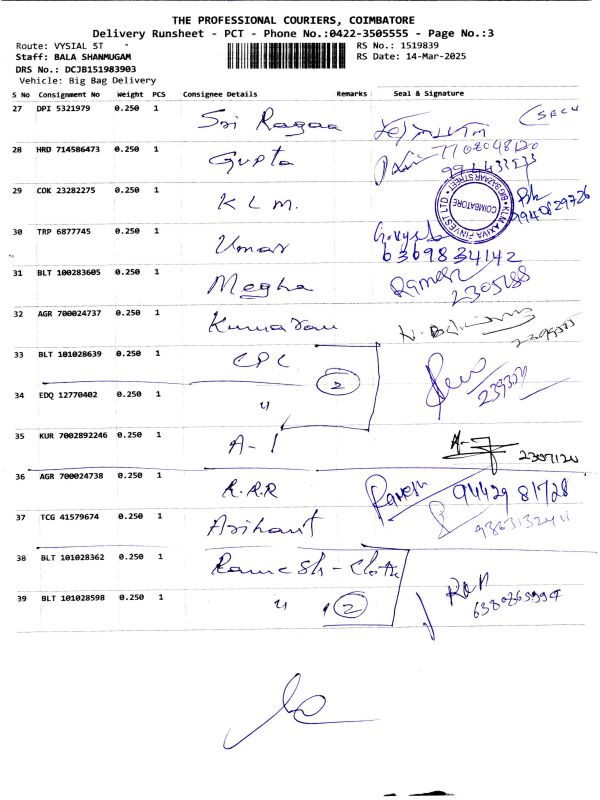 THE PROFESSIONAL COURIERS, COIMBATORE
Delivery Runsheet - PCT - Phone No.:0422-3505555 - Page No.:3
Route: VYSIAL ST - RS No.: 1519839
Staff: BALA SHANMUGAM RS Date: 14-Mar-2025
DRS No.: DCJB151983903
Vehicle: Big Bag Delivery
S No Consignment No Weight PCS Consignee Details Remarks Seal & Signature
27 DPI 5321979 0.250 1 Sri Ragaa
28 HRD 714586473 0.250 1 Gupta 7708048120
29 COK 23282275 0.250 1 K L M. 9940829726
KLM AXIVA FINVEST LTD BIG BAZAAR STREET COIMBATORE
30 TRP 6877745 0.250 1 Umar 6369834142
31 BLT 100283605 0.250 1 Megha Ramesh 2305288
32 AGR 700024737 0.250 1 Kumaran
33 BLT 101028639 0.250 1 CPC 2
34 EDQ 12770402 0.250 1 "
35 KUR 7002892246 0.250 1 A-1 2307120
36 AGR 700024738 0.250 1 R.R.R Ramesh 94429 81728
37 TCG 41579674 0.250 1 Arihant 9363132411
38 BLT 101028362 0.250 1 Ramesh-Cloth
39 BLT 101028598 0.250 1 " 2